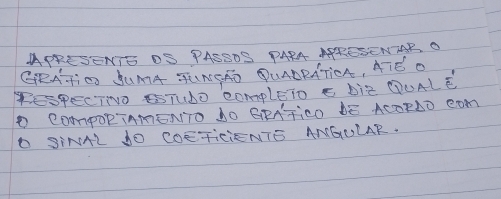 APRESENTE OS PASSOS PARA APRESENTAR O
GRÁFICO DUMA FUNÇÃO QUADRÁTICA, ATÉ O
RESPECTIVO ESTUDO COMPLETO E DIZ QUAL É
O COMPORTAMENTO DO GRÁFICO DE ACORDO COM
O SINAL DO COEFICIENTE ANGULAR.